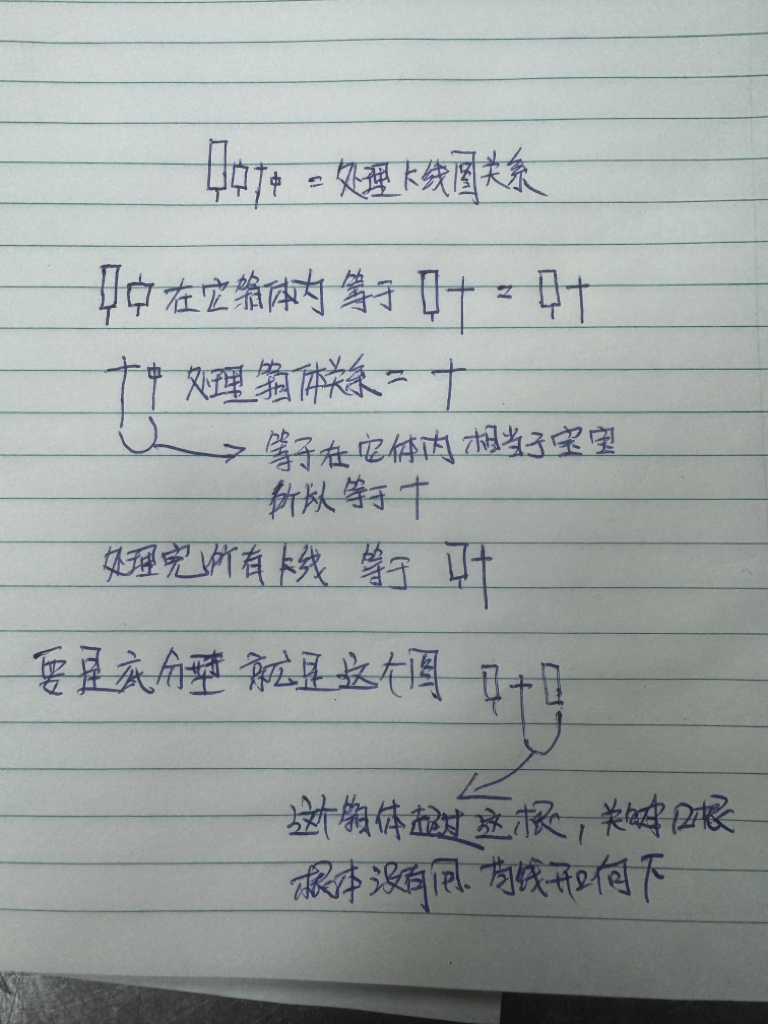 = 处理卡线图关系
在它箱体内 等于 =
处理箱体关系 =
等于在它体内 相当于宝宝
所以等于
处理完所有卡线 等于
要是底分型 就是这个图
这个箱体超过这根,关键口根
根本没有用. 向下